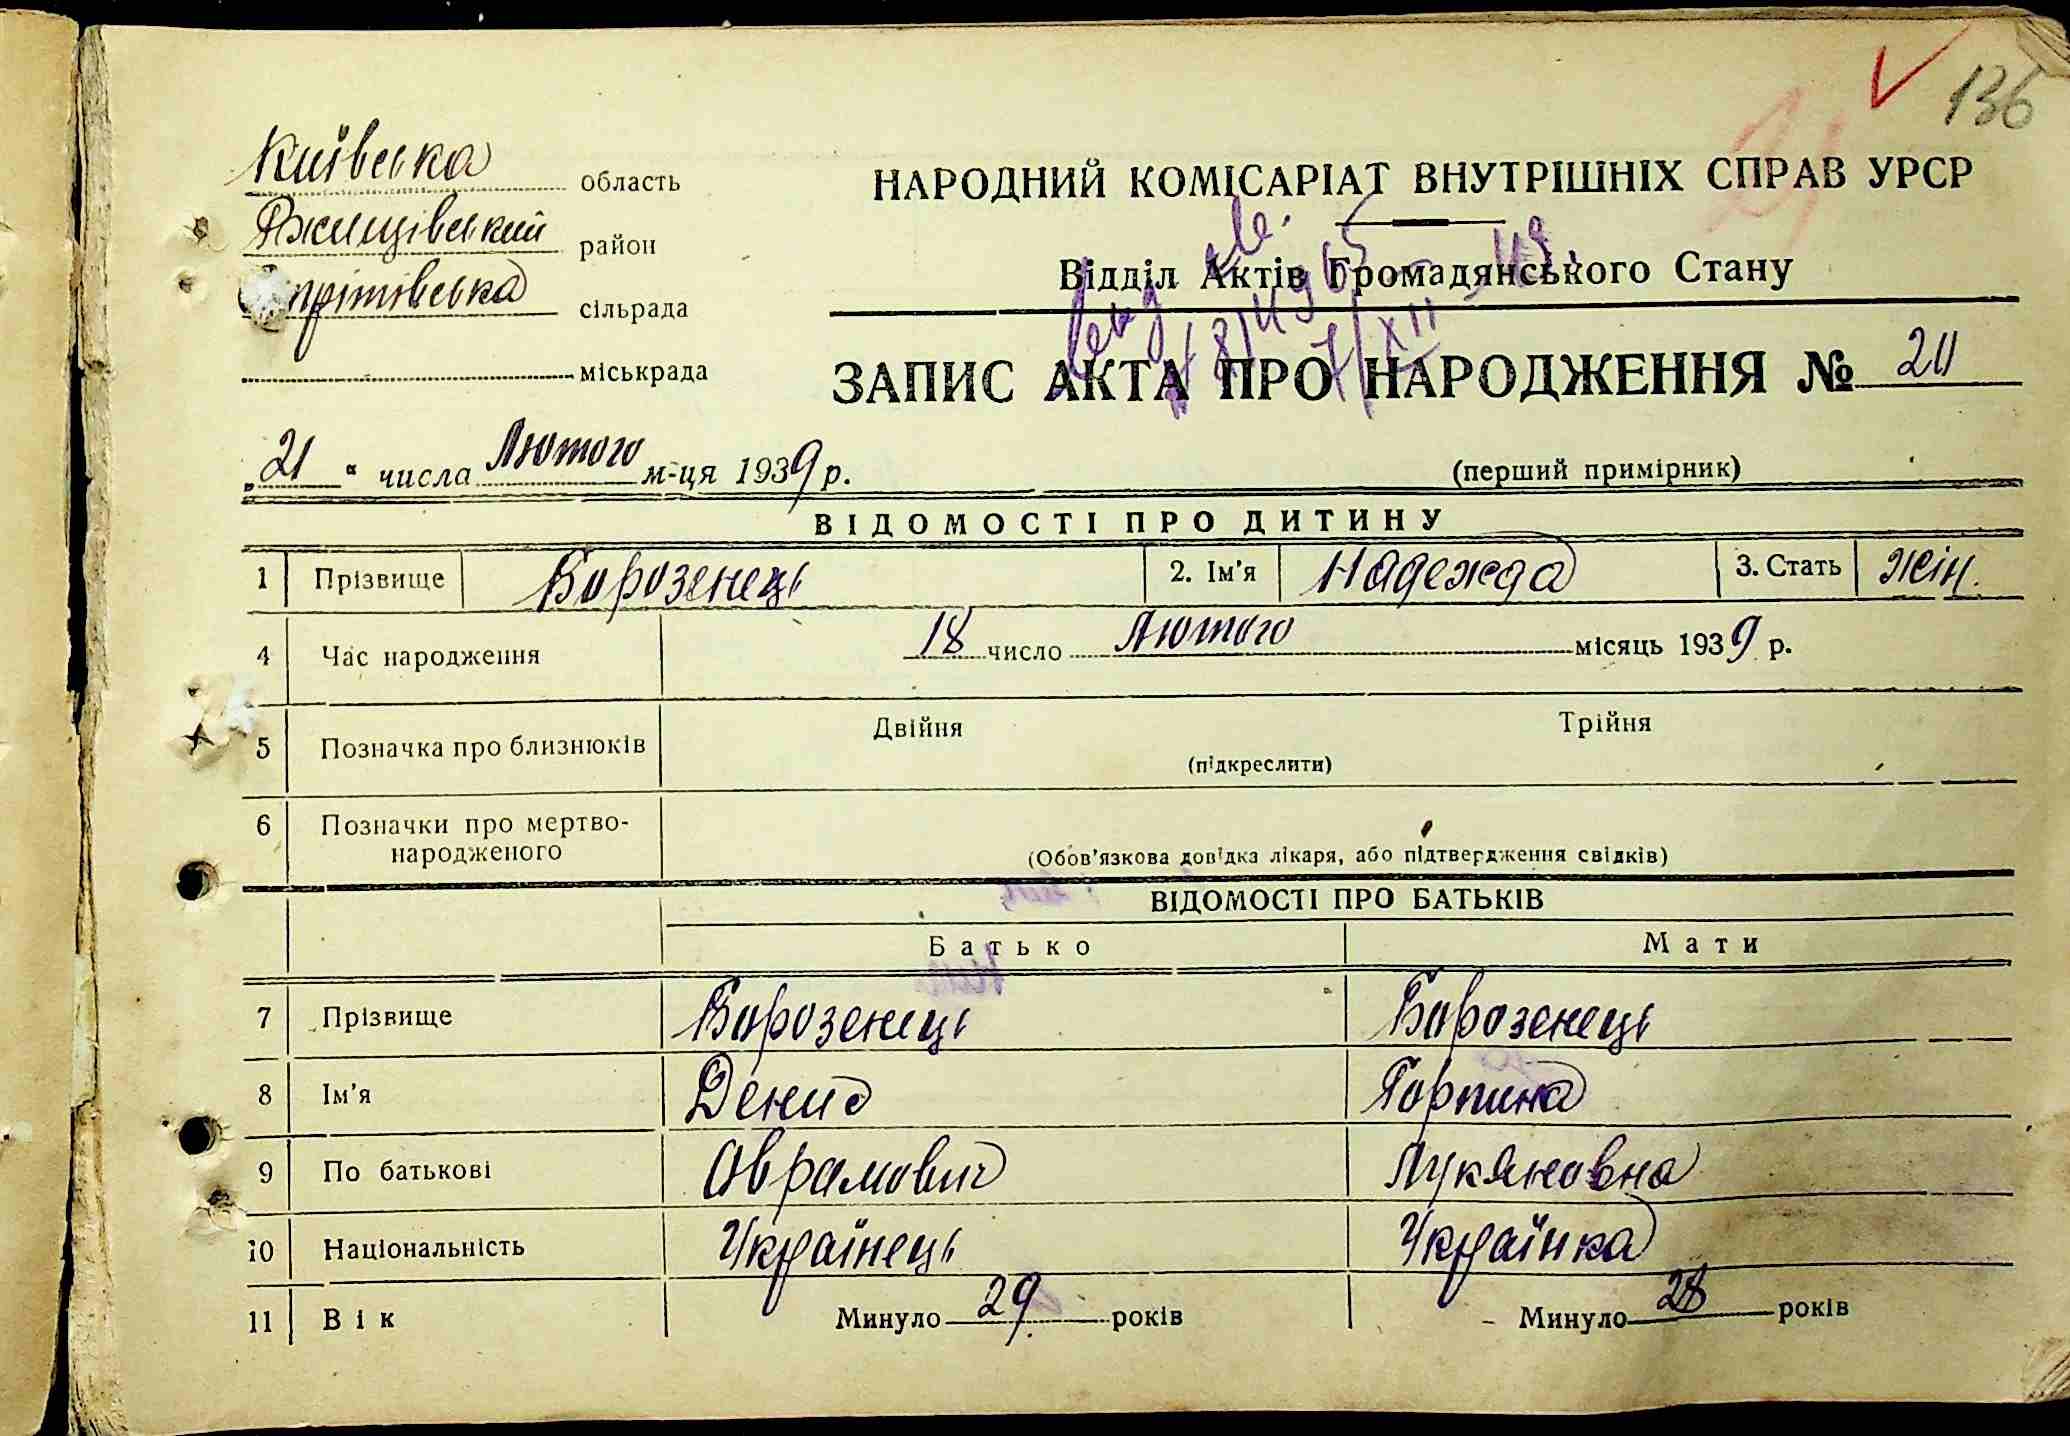 136
Київська область
Ржищівський район
сільрада
міськрада
НАРОДНИЙ КОМІСАРІАТ ВНУТРІШНІХ СПРАВ УРСР
Відділ Актів Громадянського Стану
ЗАПИС АКТА ПРО НАРОДЖЕННЯ №
„21“ числа Лютого м-ця 1939 р.
(перший примірник)
ВІДОМОСТІ ПРО ДИТИНУ
1 Прізвище Борозенець 2. Ім'я Надежда 3. Стать жін.
4 Час народження 18 число Лютого місяць 1939 р.
5 Позначка про близнюків Двійня Трійня
(підкреслити)
6 Позначки про мертво-
народженого
(Обов'язкова довідка лікаря, або підтвердження свідків)
ВІДОМОСТІ ПРО БАТЬКІВ
Батько Мати
7 Прізвище Борозенець Борозенець
8 Ім'я Денис Горпина
9 По батькові Аврамович Лукяновна
10 Національність Українець Українка
11 Вік Минуло 29 років Минуло 28 років